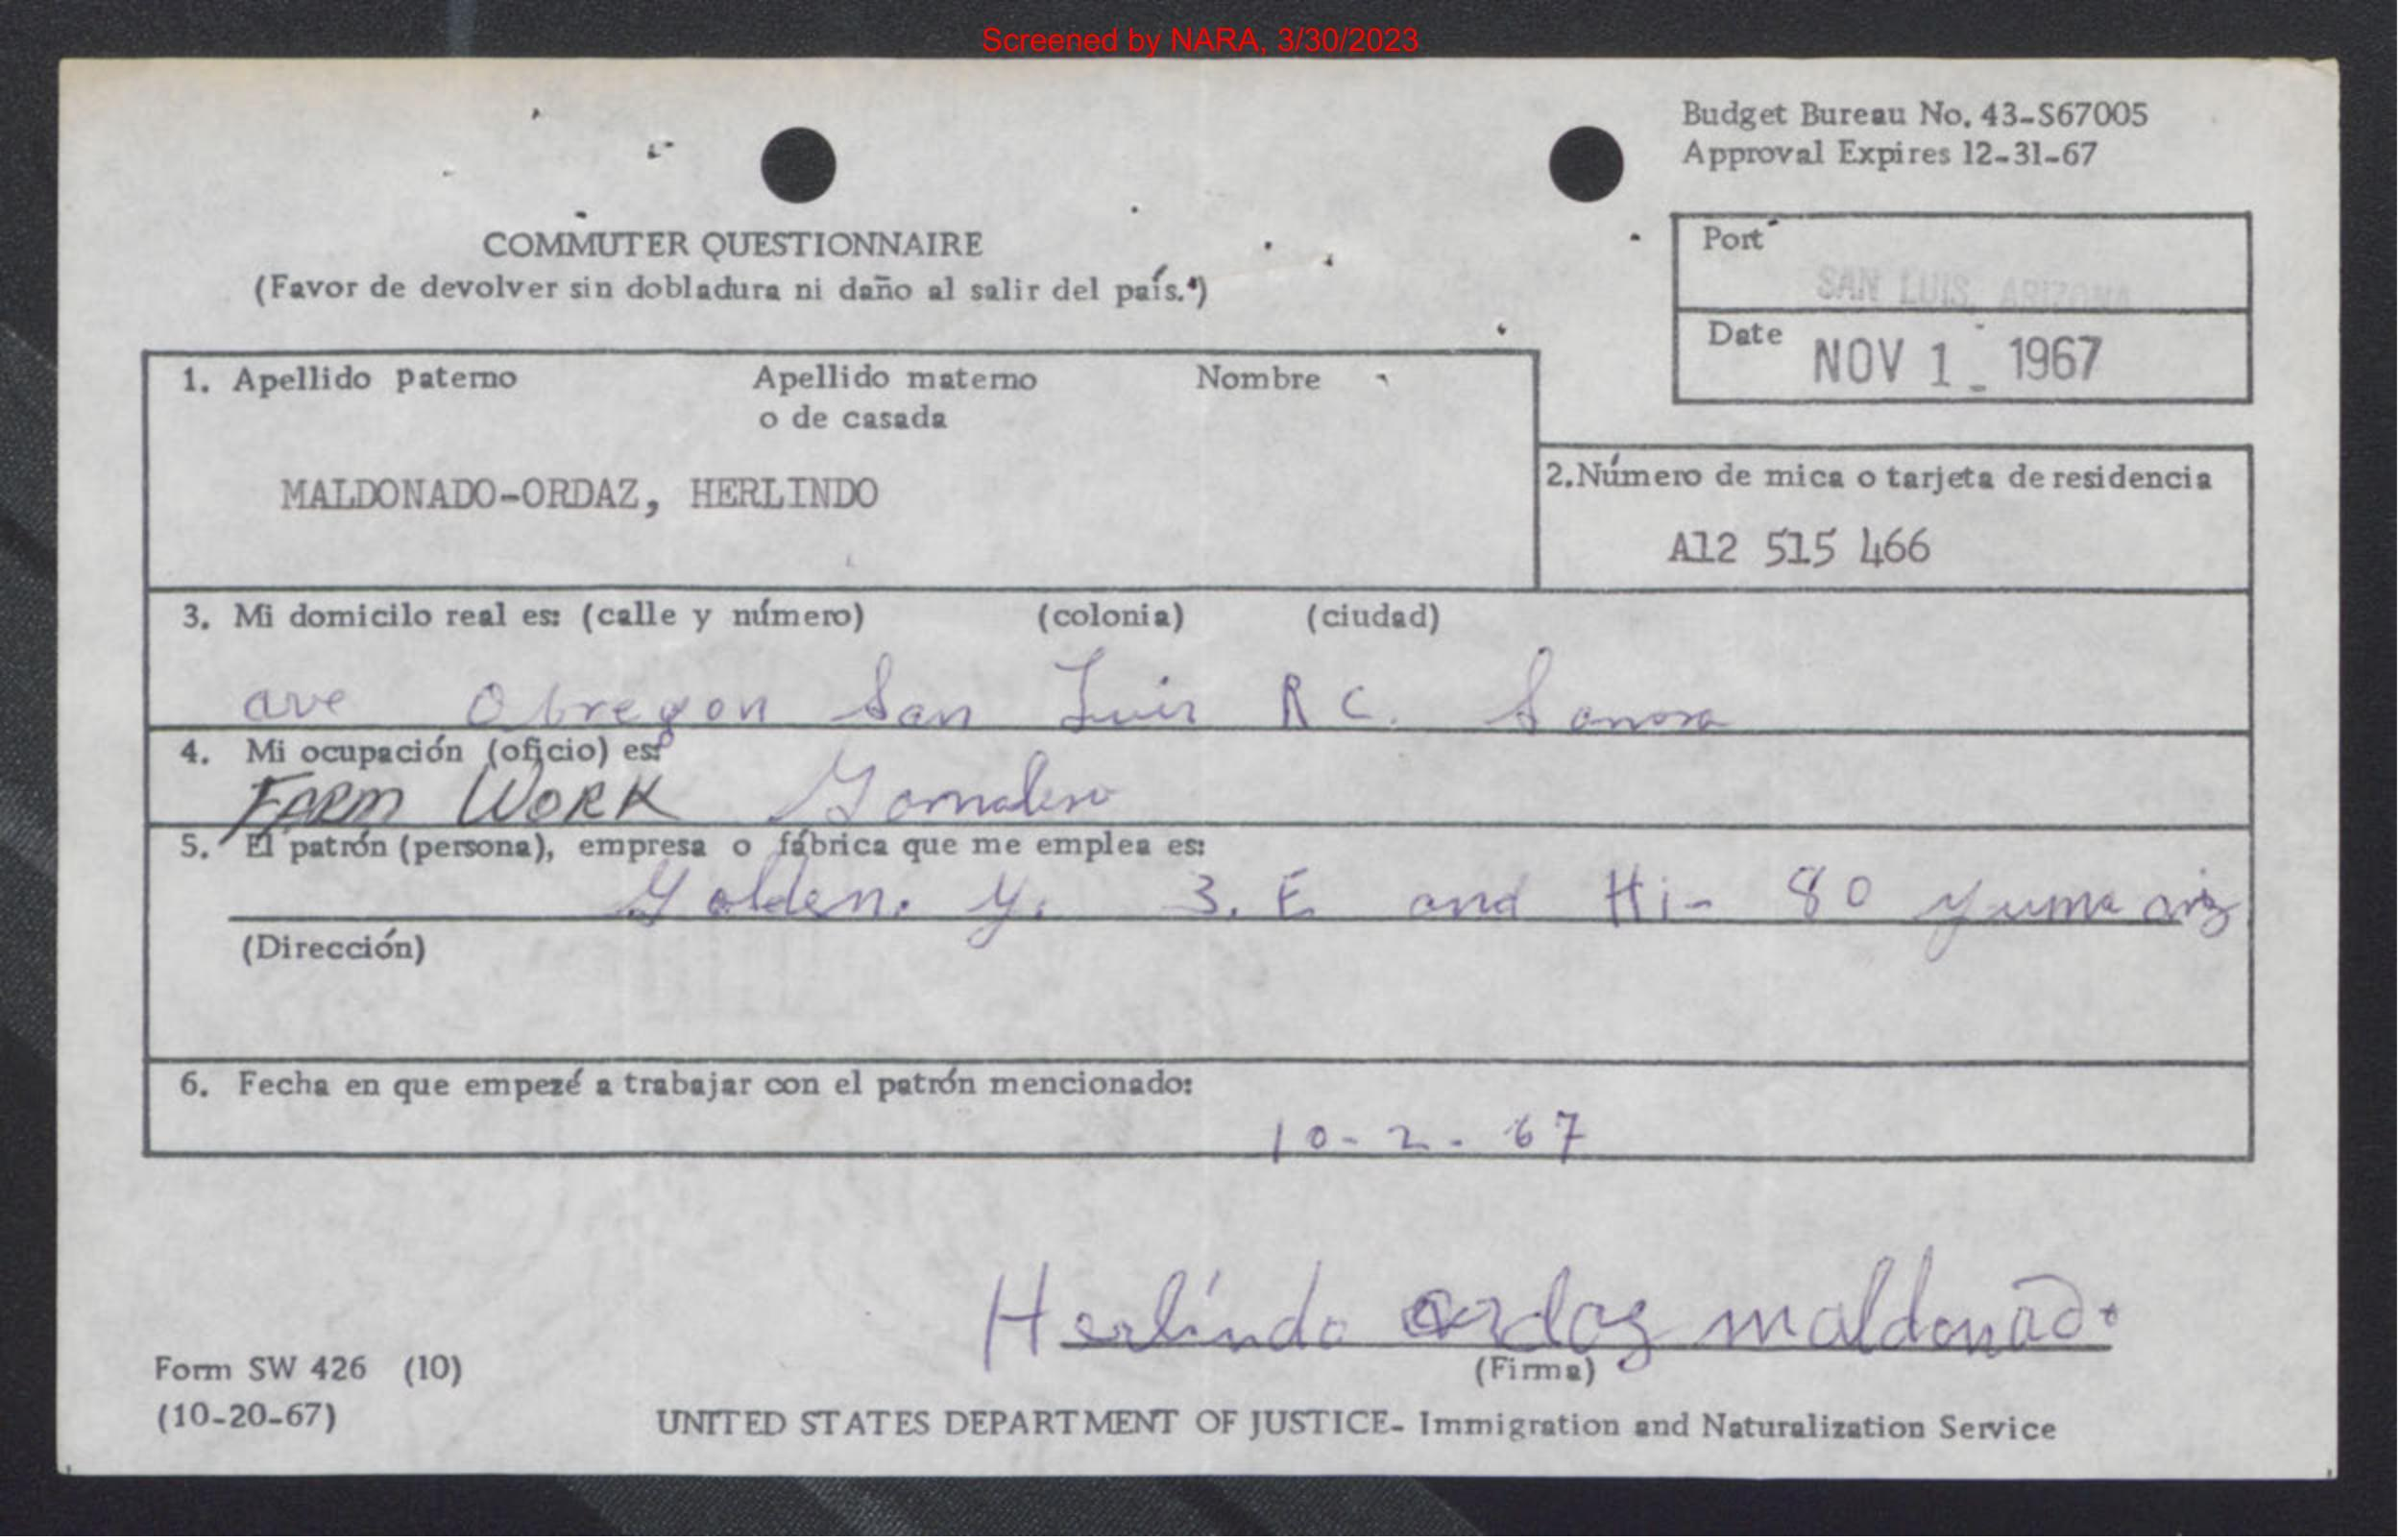 Screened by NARA, 3/30/2023
Budget Bureau No. 43-S67005
Approval Expires 12-31-67
COMMUTER QUESTIONNAIRE
(Favor de devolver sin dobladura ni daño al salir del país.)
Port
SAN LUIS, ARIZONA
Date NOV 1 1967
1. Apellido paterno Apellido materno Nombre
o de casada
MALDONADO-ORDAZ, HERLINDO
2. Número de mica o tarjeta de residencia
A12 515 466
3. Mi domicilo real es: (calle y número) (colonia) (ciudad)
ave Obregon San Luis R C. Sonora
4. Mi ocupación (oficio) es:
FARM WORK Gornalero
5. El patrón (persona), empresa o fábrica que me emplea es:
Golden. Y. 3. E and Hi- 80 Yuma ariz
(Dirección)
6. Fecha en que empezé a trabajar con el patrón mencionado:
10-2-67
Herlindo ordaz maldonado
(Firma)
Form SW 426 (10)
(10-20-67)
UNITED STATES DEPARTMENT OF JUSTICE- Immigration and Naturalization Service